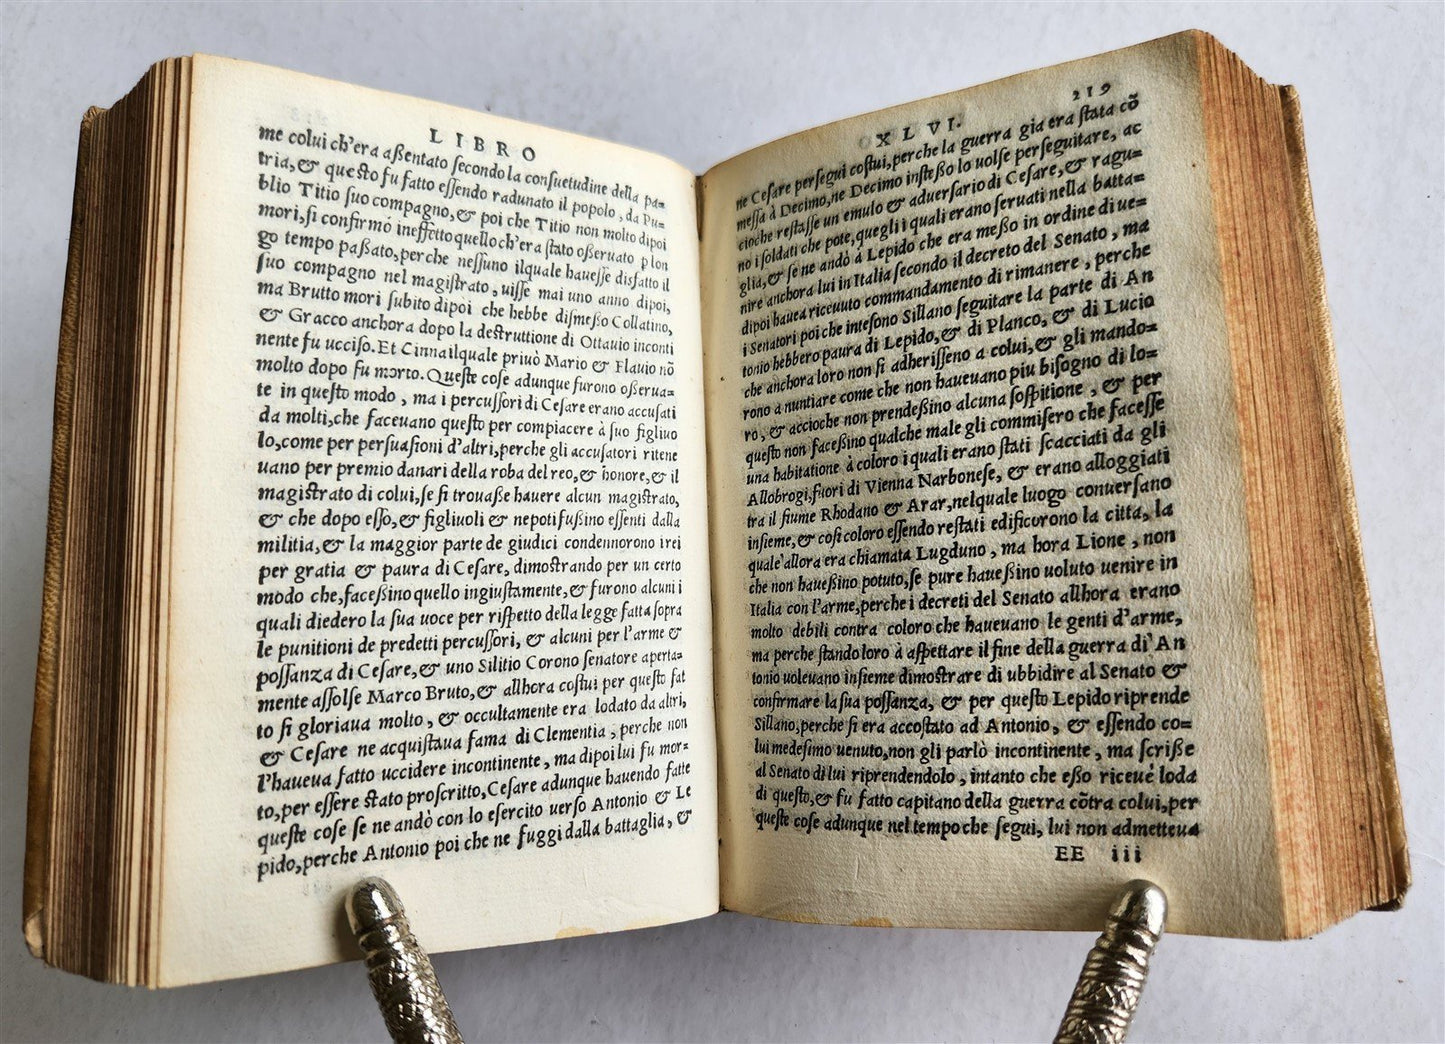 LIBRO
me colui ch'era aßentato ſecondo la conſuetudine della pa=
tria,& queſto fu fatto eſſendo radunato il popolo, da Pu=
blio Titio ſuo compagno,& poi che Titio non molto dipoi
mori,ſi confirmó ineffetto quello ch'era ſtato oßeruato p lon
go tempo paßato,perche neſſuno ilquale haueſſe disfatto il
ſuo compagno nel magiſtrato, uiſſe mai uno anno dipoi,
ma Brutto mori ſubito dipoi che hebbe diſmeßo Collatino,
& Gracco anchora dopo la deſtruttione di Ottauio inconti
nente fu ucciſo. Et Cinna ilquale priuò Mario & Flauio nõ
molto dopo fu morto. Queſte coſe adunque furono oßerua=
te in queſto modo, ma i percuſſori di Ceſare erano accuſati
da molti,che faceuano queſto per compiacere à ſuo figliuo
lo,come per perſuaſioni d'altri,perche gli accuſatori ritene
uano per premio danari della roba del reo,& honore,& il
magiſtrato di colui,ſe ſi trouaße hauere alcun magiſtrato,
& che dopo eſſo,& figliuoli & nepoti fußino eſſenti dalla
militia,& la maggior parte de giudici condennorono i rei
per gratia & paura di Ceſare, dimoſtrando per un certo
modo che,faceßino quello ingiuſtamente,& furono alcuni i
quali diedero la ſua uoce per riſpetto della legge fatta ſopra
le punitioni de predetti percuſſori, & alcuni per l'arme &
poſſanza di Ceſare,& uno Silitio Corono ſenatore aperta=
mente aſſolſe Marco Bruto,& allhora coſtui per queſto fat
to ſi gloriaua molto, & occultamente era lodato da altri,
& Ceſare ne acquiſtaua fama di Clementia, perche non
l'haueua fatto uccidere incontinente, ma dipoi lui fu mor=
to,per eſſere ſtato proſcritto,Ceſare adunque hauendo fatte
queſte coſe ſe ne andò con lo eſercito uerſo Antonio & Le
pido,perche Antonio poi che ne fuggi dalla battaglia, &
219
XLVI.
ne Ceſare perſegui coſtui,perche la guerra gia era ſtata cõ
meſſa à Decimo,ne Decimo inſteßo lo uolſe perſeguitare, ac
cioche reſtaſſe un emulo & aduerſario di Ceſare,& ragu=
no i ſoldati che pote,quegli i quali erano ſeruati nella batta=
glia,& ſe ne andò à Lepido che era meßo in ordine di ue=
nire anchora lui in Italia ſecondo il decreto del Senato, ma
dipoi hauea riceuuto commandamento di rimanere, perche
i Senatori poi che inteſono Sillano ſeguitare la parte di An
tonio hebbero paura di Lepido,& di Planco, & di Lucio
che anchora loro non ſi adheriſſeno a colui,& gli mando=
rono a nuntiare come che non haueuano piu biſogno di lo=
ro, & accioche non prendeßino alcuna ſoſpitione, & per
queſto non faceßino qualche male gli commiſero che faceſſe
una habitatione à coloro i quali erano ſtati ſcacciati da gli
Allobrogi,fuori di Vienna Narboneſe, & erano alloggiati
tra il fiume Rhodano & Arar,nelquale luogo conuerſano
inſieme,& coſi coloro eſſendo reſtati edificorono la città, la
quale'allora era chiamata Lugduno, ma hora Lione, non
che non haueßino potuto,ſe pure haueßino uoluto uenire in
Italia con l'arme,perche i decreti del Senato allhora erano
molto debili contra coloro che haueuano le genti d'arme,
ma perche ſtando loro à aſpettare il fine della guerra di An
tonio uoleuano inſieme dimoſtrare di ubbidire al Senato &
confirmare la ſua poſſanza, & per queſto Lepido riprende
Sillano,perche ſi era accoſtato ad Antonio, & eſſendo co=
lui medeſimo uenuto,non gli parlò incontinente, ma ſcriße
al Senato di lui riprendendolo, intanto che eßo riceuè loda
di queſto,& fu fatto capitano della guerra cõtra colui,per
queſte coſe adunque nel tempo che ſegui, lui non admetteua
EE iii